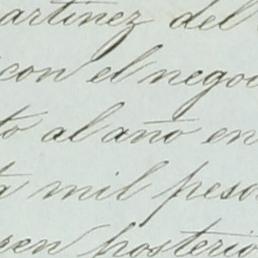 artinez del
con el negoc
to al año en
a mil peso
ren posterio